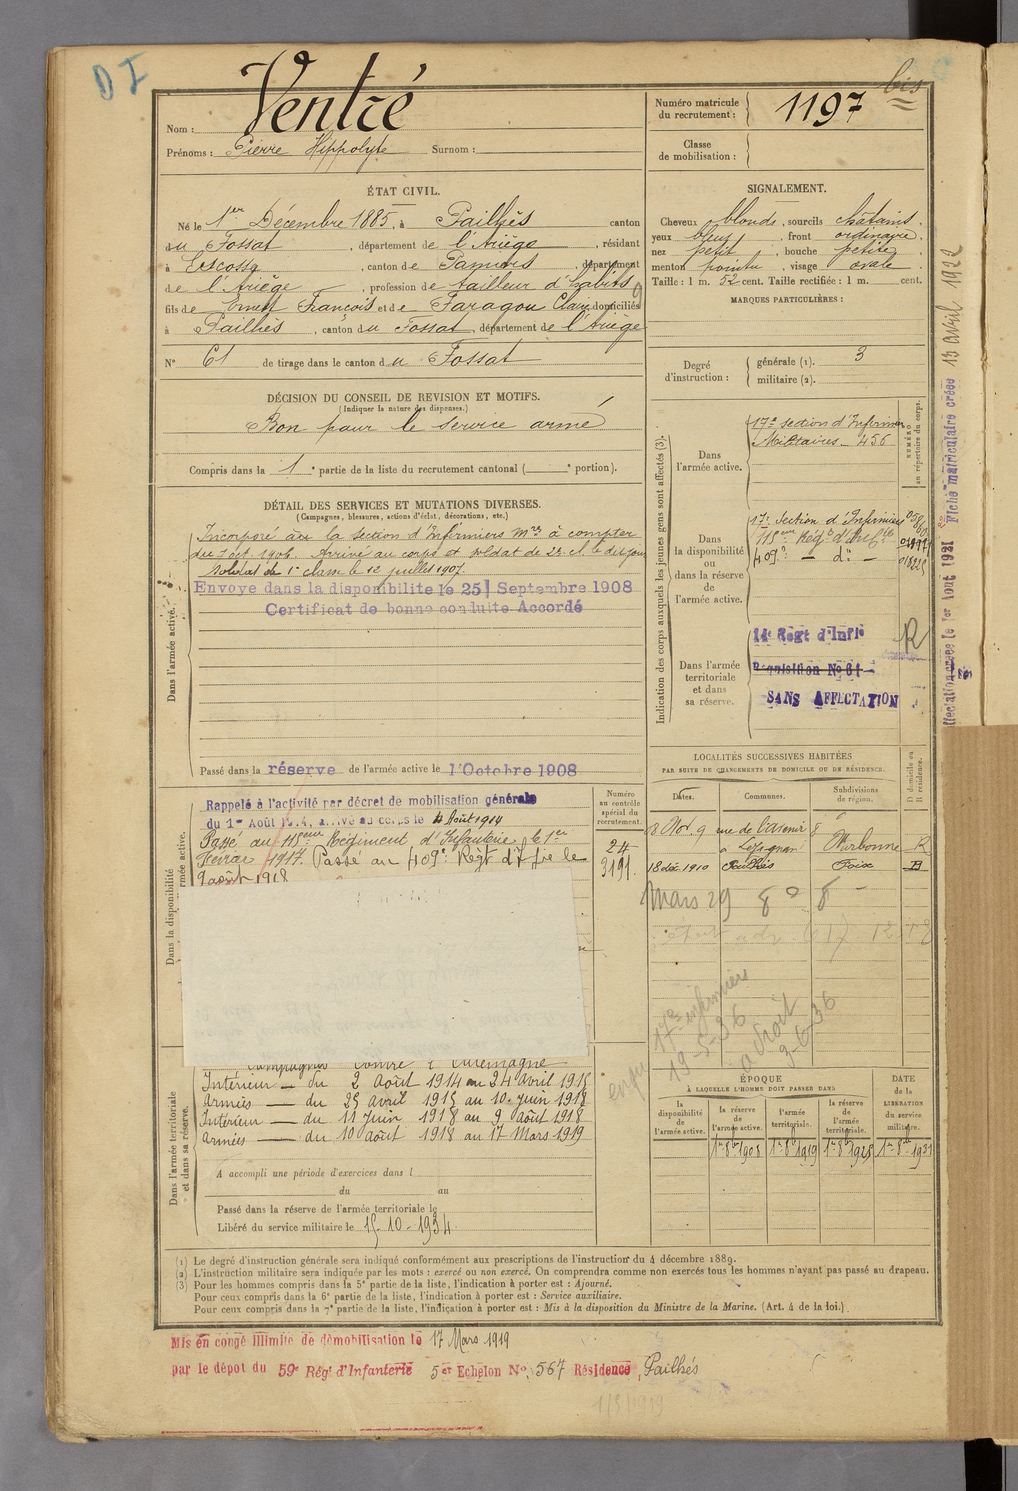 D I
bis
Nom : Ventré
Prénoms : Pierre Hippolyte Surnom :
Numéro matricule du recrutement : 1197
Classe de mobilisation :
ÉTAT CIVIL.
Né le 1er Décembre 1885, à Pailhès canton
du Fossat, département de l'Ariège, résidant
à Escosse, canton de Pamiers, département
de l'Ariège, profession de tailleur d'habits
fils de Ernest François et de Faragou Claire domiciliés
à Pailhès, canton du Fossat, département de l'Ariège
N° 61 de tirage dans le canton du Fossat
SIGNALEMENT.
Cheveux blonds, sourcils châtains.
yeux bleus, front ordinaire,
nez petit, bouche petite,
menton pointu, visage ovale
Taille : 1 m. 52 cent. Taille rectifiée : 1 m. cent.
MARQUES PARTICULIÈRES :
Degré d'instruction : générale (1). 3
militaire (2).
DÉCISION DU CONSEIL DE REVISION ET MOTIFS.
(Indiquer la nature des dispenses.)
Bon pour le service armé
Compris dans la 1e partie de la liste du recrutement cantonal ( e portion).
DÉTAIL DES SERVICES ET MUTATIONS DIVERSES.
(Campagnes, blessures, actions d'éclat, décorations, etc.)
Dans l'armée active.
Incorporé à la section d'Infirmiers Mres à compter
du 7 oct. 1906. Arrivé au corps et soldat de 2e cl. le dit jour
Soldat de 1e classe le 12 juillet 1907.
Envoyé dans la disponibilité le 25 Septembre 1908
Certificat de bonne conduite Accordé
Passé dans la réserve de l'armée active le 1 Octobre 1908
Indication des corps auxquels les jeunes gens sont affectés (3).
NUMÉRO au répertoire du corps.
Dans l'armée active.
17e section d'Infirmiers
Militaires 456
Dans la disponibilité ou dans la réserve de l'armée active.
17e Section d'Infirmiers
115eme Rég d'Infie
409e — do —
Dans l'armée territoriale et dans sa réserve.
14e Régt d'Infie R
Réquisition No 61
SANS AFFECTATION
Affectation créée le 1er Aout 1921 Fiche matriculaire créée 13 avril 1922
LOCALITÉS SUCCESSIVES HABITÉES
PAR SUITE DE CHANGEMENTS DE DOMICILE OU DE RÉSIDENCE.
D domicile ou R résidence.
Dates. Communes. Subdivisions de région.
rue de Casimir 8
à Lézignan Narbonne R
18 déc. 1910 Pailhès Foix D
Mars 29
Dans la disponibilité
armée active.
Numéro au contrôle spécial du recrutement.
24
3191.
Rappelé à l'activité par décret de mobilisation générale
du 1er Août 1914, arrivé au corps le 4 Août 1914
Passé au 115eme Régiment d'Infanterie le 1er
Février 1917. Passé au 409e Régt d'Infie le
9 août 1918
17e infirmiers
19-5-36
a droit
9-6-36
Dans l'armée territoriale et dans sa réserve.
Campagnes Contre l'Allemagne
Intérieur — du 2 Août 1914 au 24 avril 1915
Armées — du 25 avril 1915 au 10 juin 1918
Intérieur — du 11 Juin 1918 au 9 août 1918
Armées — du 10 août 1918 au 17 Mars 1919
A accompli une période d'exercices dans l
du au
Passé dans la réserve de l'armée territoriale le
Libéré du service militaire le 15-10-1934.
ÉPOQUE
À LAQUELLE L'HOMME DOIT PASSER DANS
DATE de la LIBÉRATION du service militaire.
la disponibilité de l'armée active.
la réserve de l'armée active.
l'armée territoriale.
la réserve de l'armée territoriale.
1er 8bre 1908 1er 8bre 1919 1er 8bre 1925 1er 8bre 1931
(1) Le degré d'instruction générale sera indiqué conformément aux prescriptions de l'instruction du 4 décembre 1889.
(2) L'instruction militaire sera indiquée par les mots : exercé ou non exercé. On comprendra comme non exercés tous les hommes n'ayant pas passé au drapeau.
(3) Pour les hommes compris dans la 5e partie de la liste, l'indication à porter est : Ajourné.
Pour ceux compris dans la 6e partie de la liste, l'indication à porter est : Service auxiliaire.
Pour ceux compris dans la 7e partie de la liste, l'indication à porter est : Mis à la disposition du Ministre de la Marine. (Art. 4 de la loi.)
Mis en congé illimité de démobilisation le 17 Mars 1919
par le dépôt du 59e Régt d'Infanterie 5er Echelon No 567 Résidence Pailhés